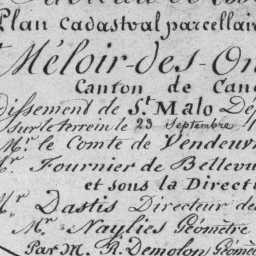 Plan cadastral parcellai
Méloir-des-On
Canton de Can
dissement de St. Malo Dé
Sur le terrein le 23 Septembre
Mr. le Comte de Vendeuv
Mr. Fournier de Bellevu
et sous la Direct
Mr. Dastis Directeur de
Mr. Naylies Géomètre
Par M. R. Demolon, Géomè